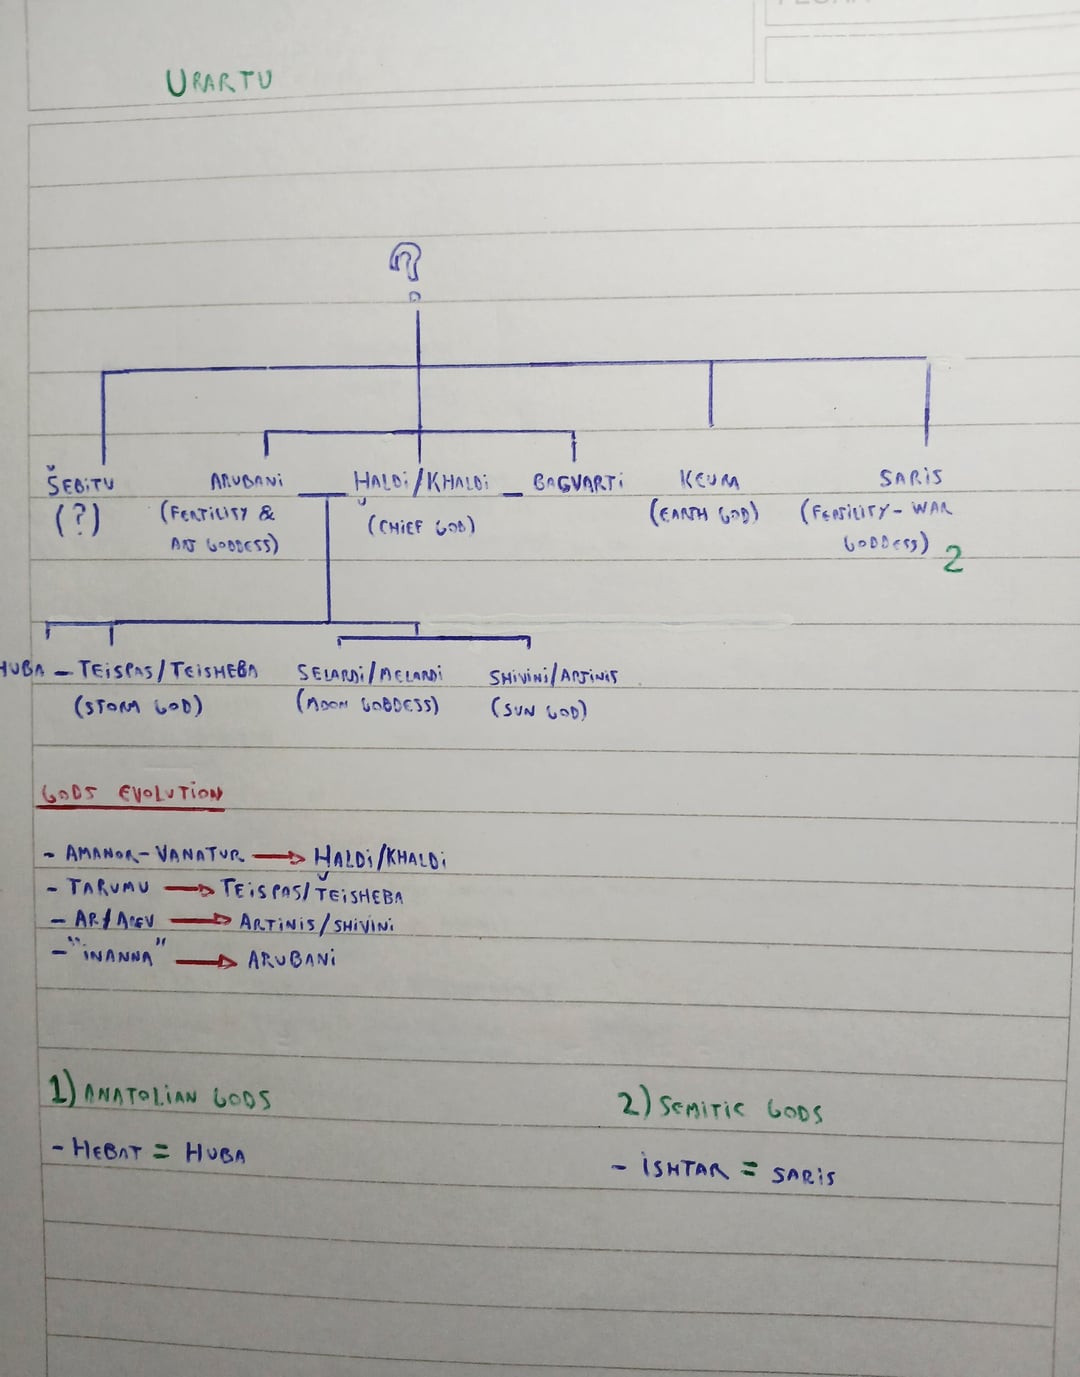 URARTU
?
ŠEBITU ARUBANI HALDI/KHALDI BAGVARTI KEURA SARIS
(?) (FERTILITY & (CHIEF GOD) (EARTH GOD) (FERTILITY-WAR
ART GODDESS) GODDESS) 2
HUBA - TEISPAS/TEISHEBA SELARDI/MELARDI SHIVINI/ARTINIS
(STORM GOD) (MOON GODDESS) (SUN GOD)
GODS EVOLUTION
- AMANOR-VANATUR → HALDI/KHALDI
- TARUMU → TEISPAS/TEISHEBA
- AR/AREV → ARTINIS/SHIVINI
- "INANNA" → ARUBANI
1) ANATOLIAN GODS
- HEBAT = HUBA
2) SEMITIC GODS
- ISHTAR = SARIS